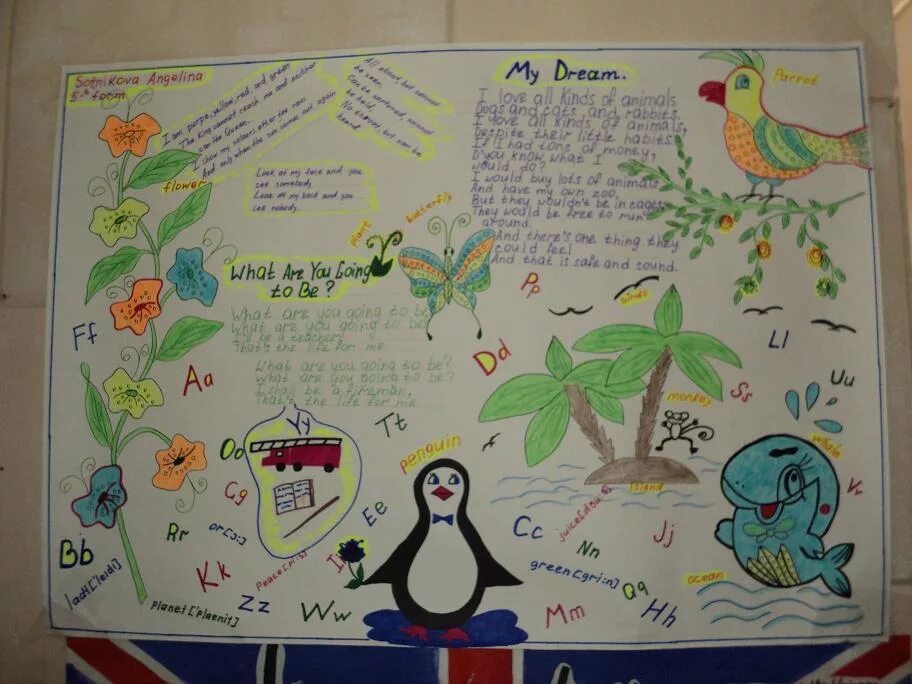 Sotnikova Angelina
5 form
I am purpe, yellow, red, and green
The King cannot reach me and neither
can the Queen.
I show my colours after the rain
And only when the sun comes out again
All about, but cannot
be seen,
Can be captured, cannot
be held
No throat, but can be
heard.
Look at my face and you
see somebody
Look at my back and you
see nobody.
flower
plant
butterfly
What Are You Going
to Be?
What are you going to be
What are you going to be
I'll be a teacher
That's the life for me
What are you going to be?
What are you going to be?
I shall be a fireman,
That's the life for me
My Dream.
I love all kinds of animals
Dogs and cats and rabbits.
I love all kinds of animals,
Despite their little habits.
If I had tons of money,
D'you know what I
would do?
I would buy lots of animals
And have my own zoo.
But they wouldn't be in cages
They would be free to run
around.
And there's one thing they
could feel
And that is safe and sound.
Parrot
birds
Pp
Ll
Ff
Aa
Dd
Ss
Uu
monkey
Yy
Tt
Oo
penguin
whale
Island
Gg
Ee
Cc
Jj
Nn
Rr
Bb
Kk
Zz
Ww
Mm
green [gri:n]
Qq
Hh
ocean
planet ['plaenit]